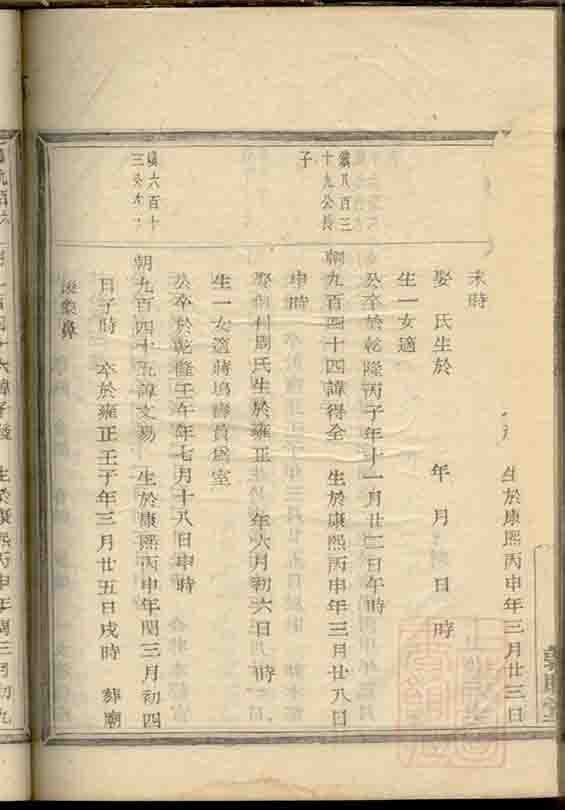 生於康熙丙申年三月廿三日
未時
娶 氏生於 年 月 日 時
生一女適
公卒於乾隆丙子年十一月廿二日午時
鎮八百三
十九公長
子
朝九百四十四諱得全 生於康熙丙申年三月廿八日
申時
娶 村周氏生於雍正 年六月初六日 時
生一女適蔣塢壽員為室
公卒於乾隆壬午年七月十八日申時
鎮六百十
三公
朝九百四十五諱文易 生於康熙丙申年閏三月初四
日子時 卒於雍正壬子年三月廿五日戌時 葬廟
後象鼻
生於康熙丙申年閏三月初九